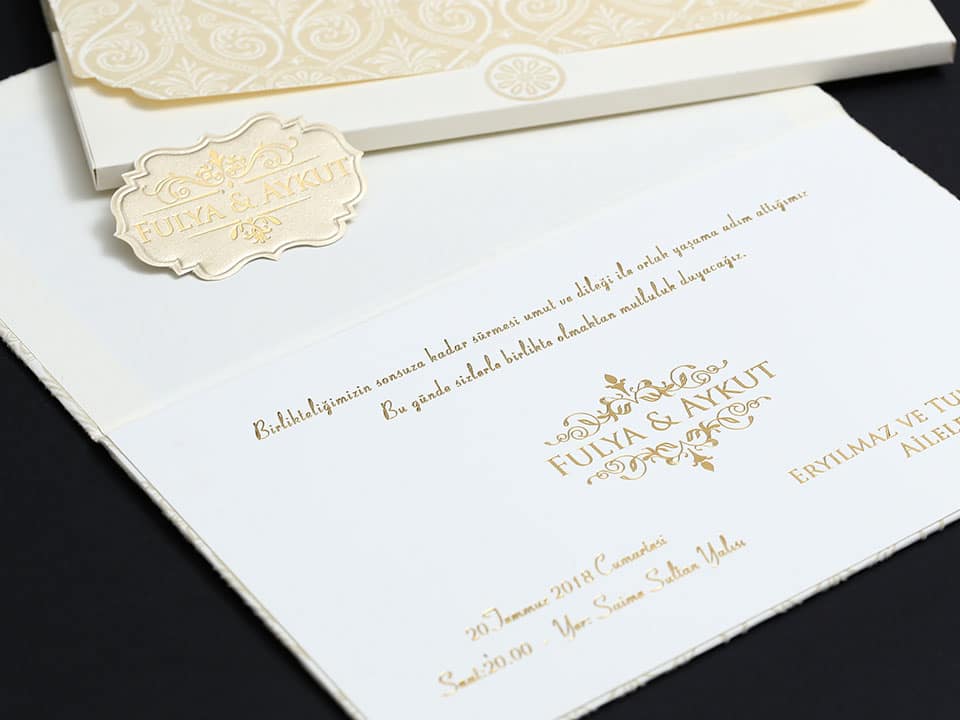 FULYA & AYKUT
Birlikteliğimizin sonsuza kadar sürmesi umut ve dileği ile ortak yaşama adım attığımız
Bu günde sizlerle birlikte olmaktan mutluluk duyacağız.
FULYA & AYKUT
ERYILMAZ VE
20 Temmuz 2018 Cumartesi
Saat:20.00 - Yer: Saime Sultan Yalısı